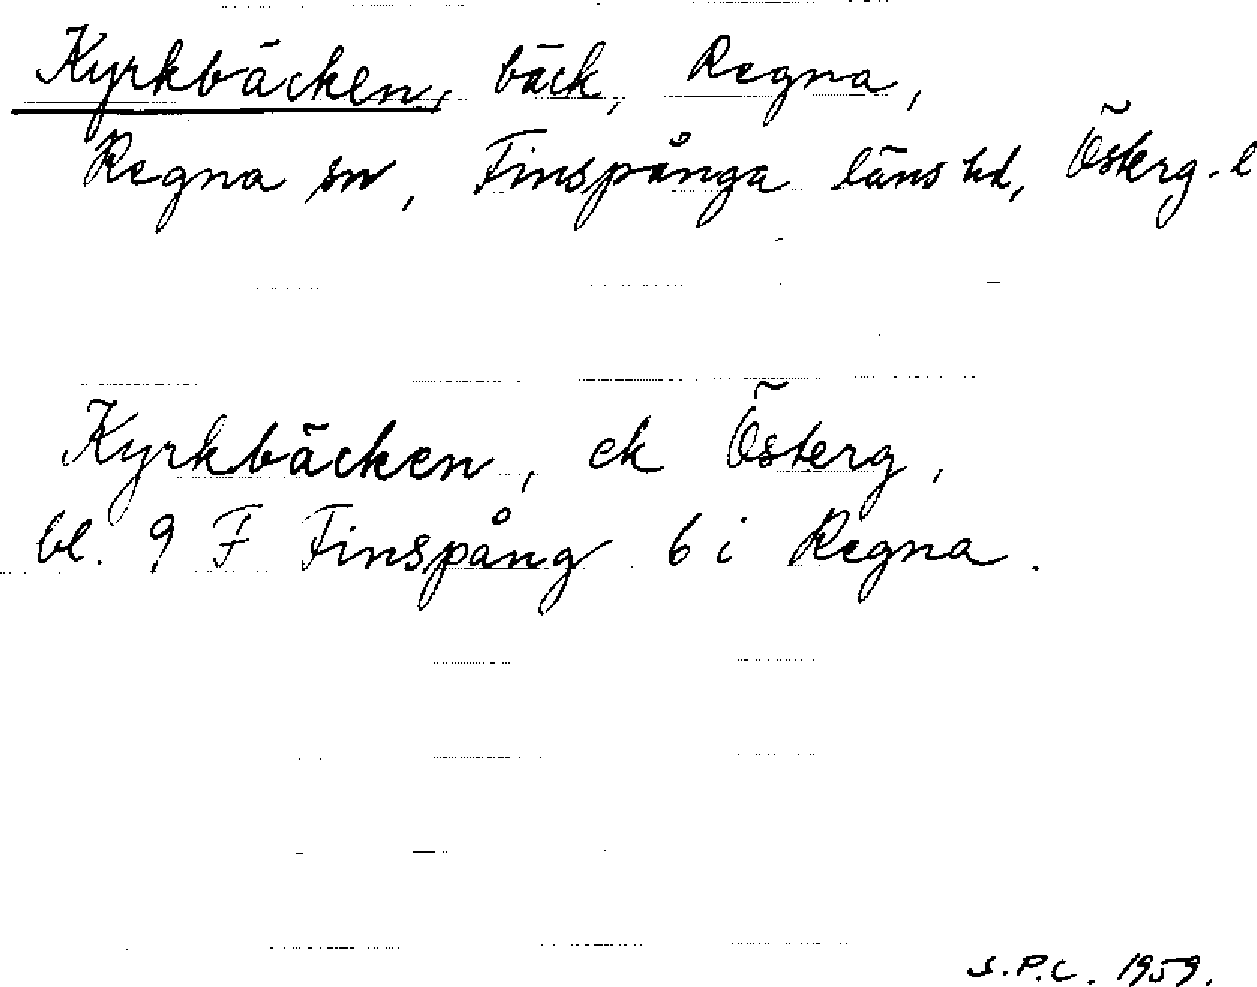 Kyrkbäcken, bäck, Regna,
Regna sn, Finspånga läns hd, Österg. l
Kyrkbäcken, ek Österg,
bl. 9 F Finspång 6 i Regna.
S.P.C. 1959.